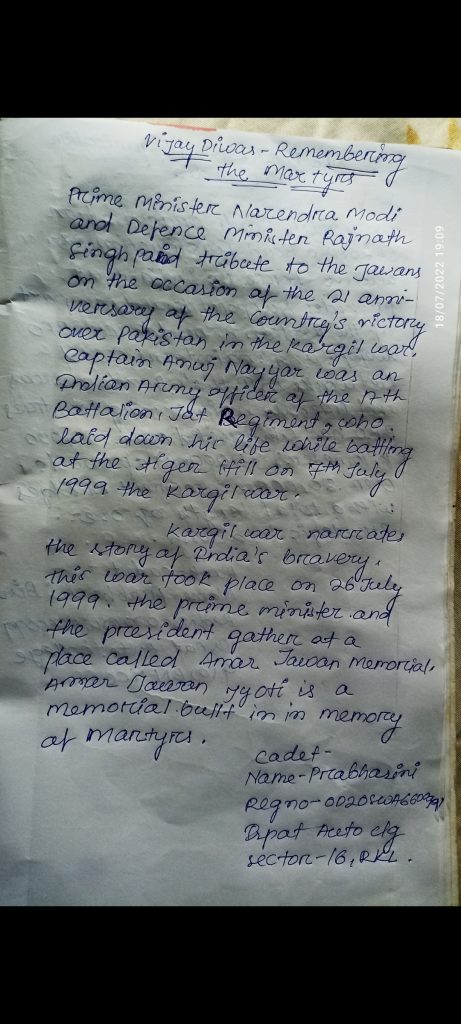 Vijay Diwas - Remembering
the Martyrs
Prime Minister Narendra Modi
and Defence Minister Rajnath
Singh paid tribute to the Jawans
on the occasion of the 21 anni-
versary of the Country's victory
over Pakistan in the Kargil war.
Captain Anuj Nayyar was an
Indian Army officer of the 17th
Battalion, Jat Regiment, who
laid down his life while battling
at the tiger Hill on 7th July
1999 the Kargil war.
Kargil war narrates
the story of India's bravery.
this war took place on 26 July
1999. the prime minister and
the president gather at a
place called Amar Jawan Memorial.
Amar Jawan Jyoti is a
memorial built in in memory
of Martyrs.
Cadet-
Name-Prabhasini
Regno-
Ispat Auto clg
Sector-16, RKL.
18/07/2022 19:09